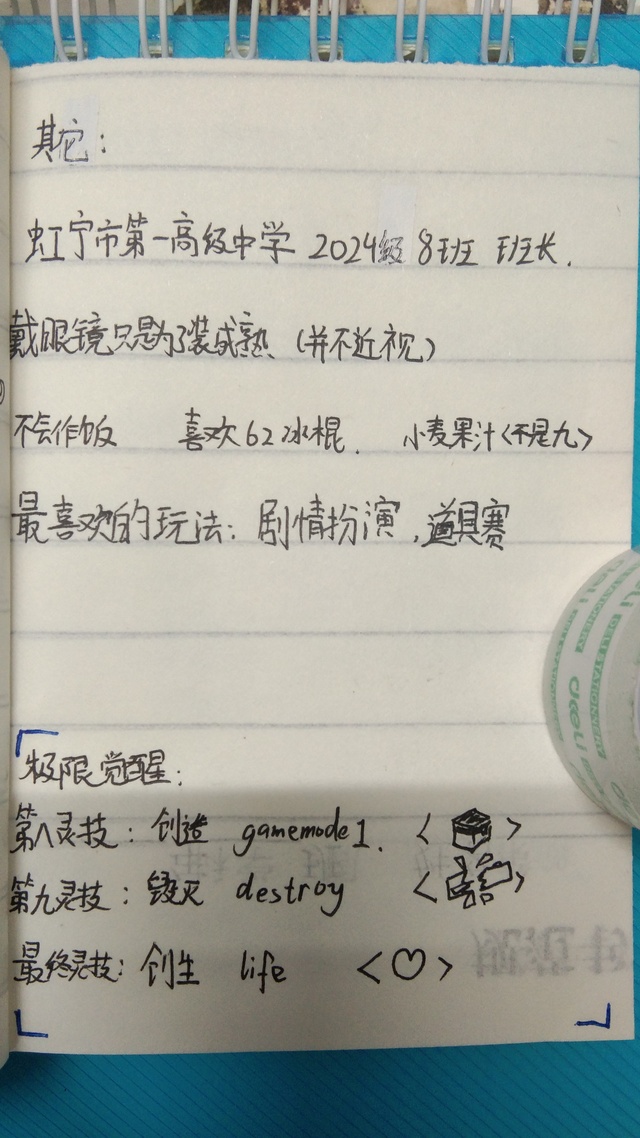 其它：
虹宁市第一高级中学 2024级 8班 班长.
戴眼镜只是为了装成熟.（并不近视）
不会作饭 喜欢62冰棍. 小麦果汁<不是九>
最喜欢的玩法：剧情扮演，道具赛
极限觉醒：
第八灵技：创造 gamemode 1. < >
第九灵技：毁灭 destroy < >
最终灵技：创生 life <♡>
deli
DELI STATIONERY
deli